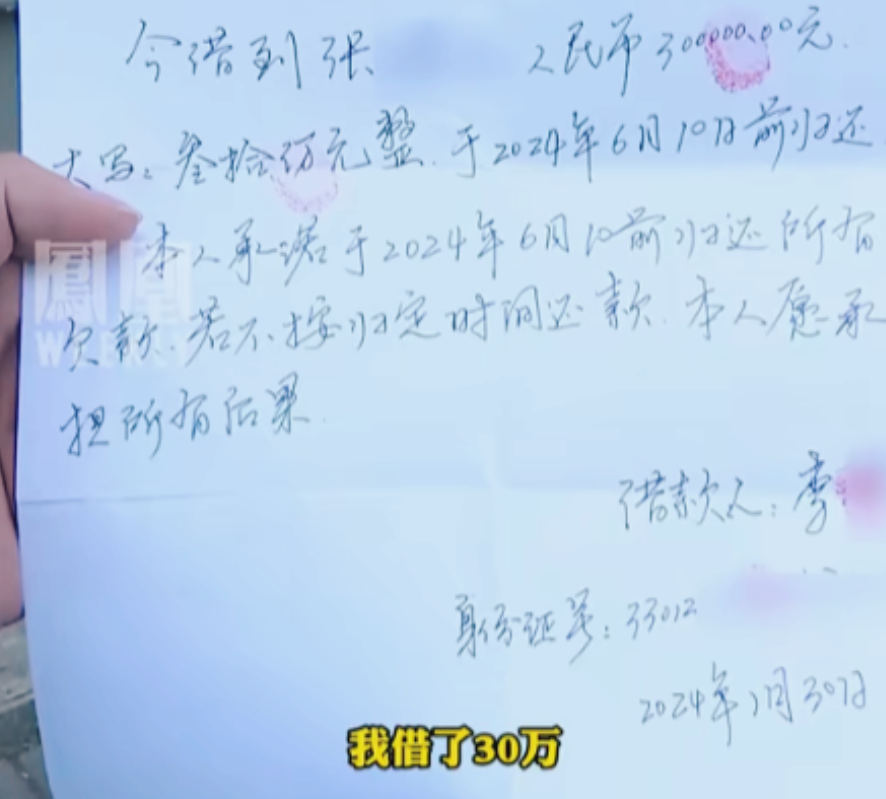 今借到张 人民币300000.00元.
大写：叁拾万元整.于2024年6月10日前归还
本人承诺于2024年6月10前归还所有
欠款.若不按归定时间还款.本人愿承
担所有后果.
借款人：李
身份证号：33012
2024年1月30日
鳳凰
我借了30万